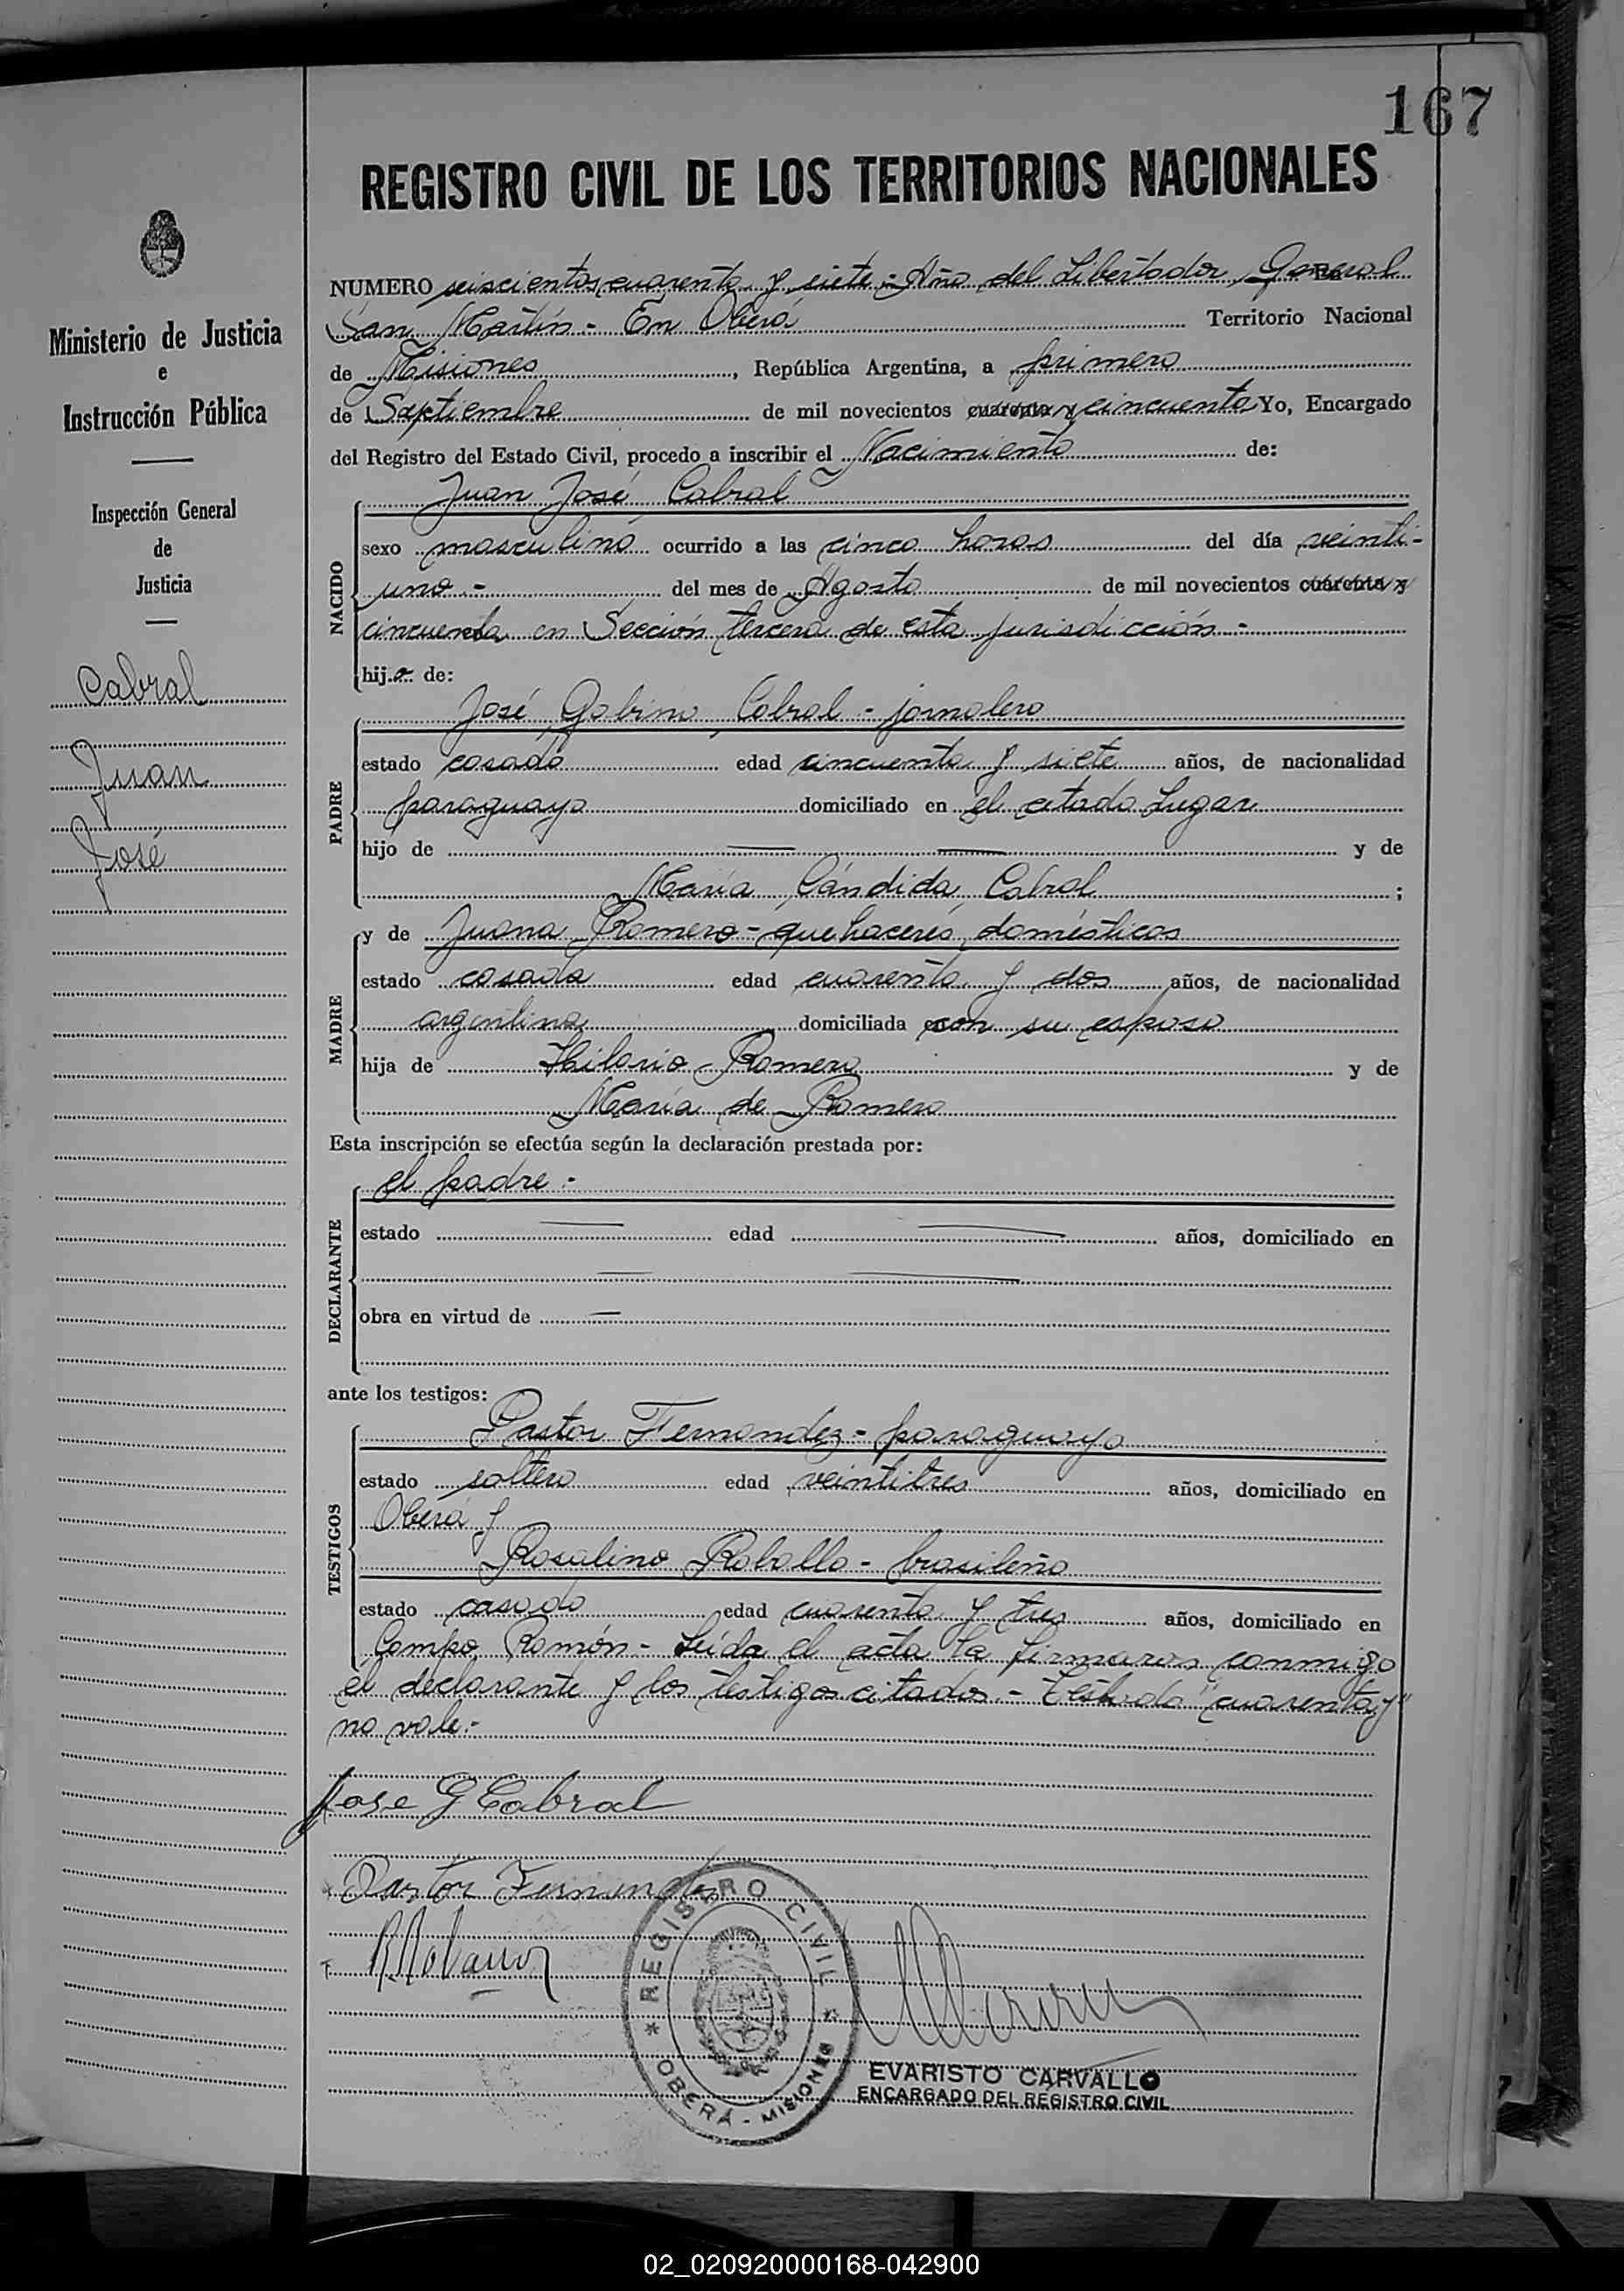 167
REGISTRO CIVIL DE LOS TERRITORIOS NACIONALES
Ministerio de Justicia
e
Instrucción Pública
Inspección General
de
Justicia
Cabral
Juan
José
NUMERO seiscientos cuarenta y siete.- Año del Libertador General
San Martín.- En Oberá Territorio Nacional
de Misiones, República Argentina, a primero
de Septiembre de mil novecientos cuarenta y cincuenta Yo, Encargado
del Registro del Estado Civil, procedo a inscribir el Nacimiento de:
NACIDO
Juan José Cabral
sexo masculino ocurrido a las cinco horas del día veinti-
uno.- del mes de Agosto de mil novecientos cuarenta y
cincuenta en Sección tercera de esta jurisdicción.-
hijo de:
PADRE
José Gabino Cabral - jornalero
estado casado edad cincuenta y siete años, de nacionalidad
paraguayo domiciliado en el citado lugar
hijo de y de
María Cándida Cabral ;
MADRE
y de Juana Romero - quehaceres domésticos
estado casada edad cuarenta y dos años, de nacionalidad
argentina domiciliada con su esposo
hija de Hilario Romero y de
María de Romero
Esta inscripción se efectúa según la declaración prestada por:
DECLARANTE
el padre.-
estado edad años, domiciliado en
obra en virtud de
ante los testigos:
TESTIGOS
Pastor Fernandez - paraguayo
estado soltero edad veintitres años, domiciliado en
Oberá y
Rosalino Roballo - brasileño
estado casado edad cuarenta y tres años, domiciliado en
Campo Ramón.- Leída el acta la firmaron conmigo
el declarante y los testigos citados.- Testado "cuarenta y"
no vale.-
Jose G Cabral
Pastor Fernandes
REGISTRO CIVIL
OBERÁ - MISIONES
EVARISTO CARVALLO
ENCARGADO DEL REGISTRO CIVIL
02_020920000168-042900